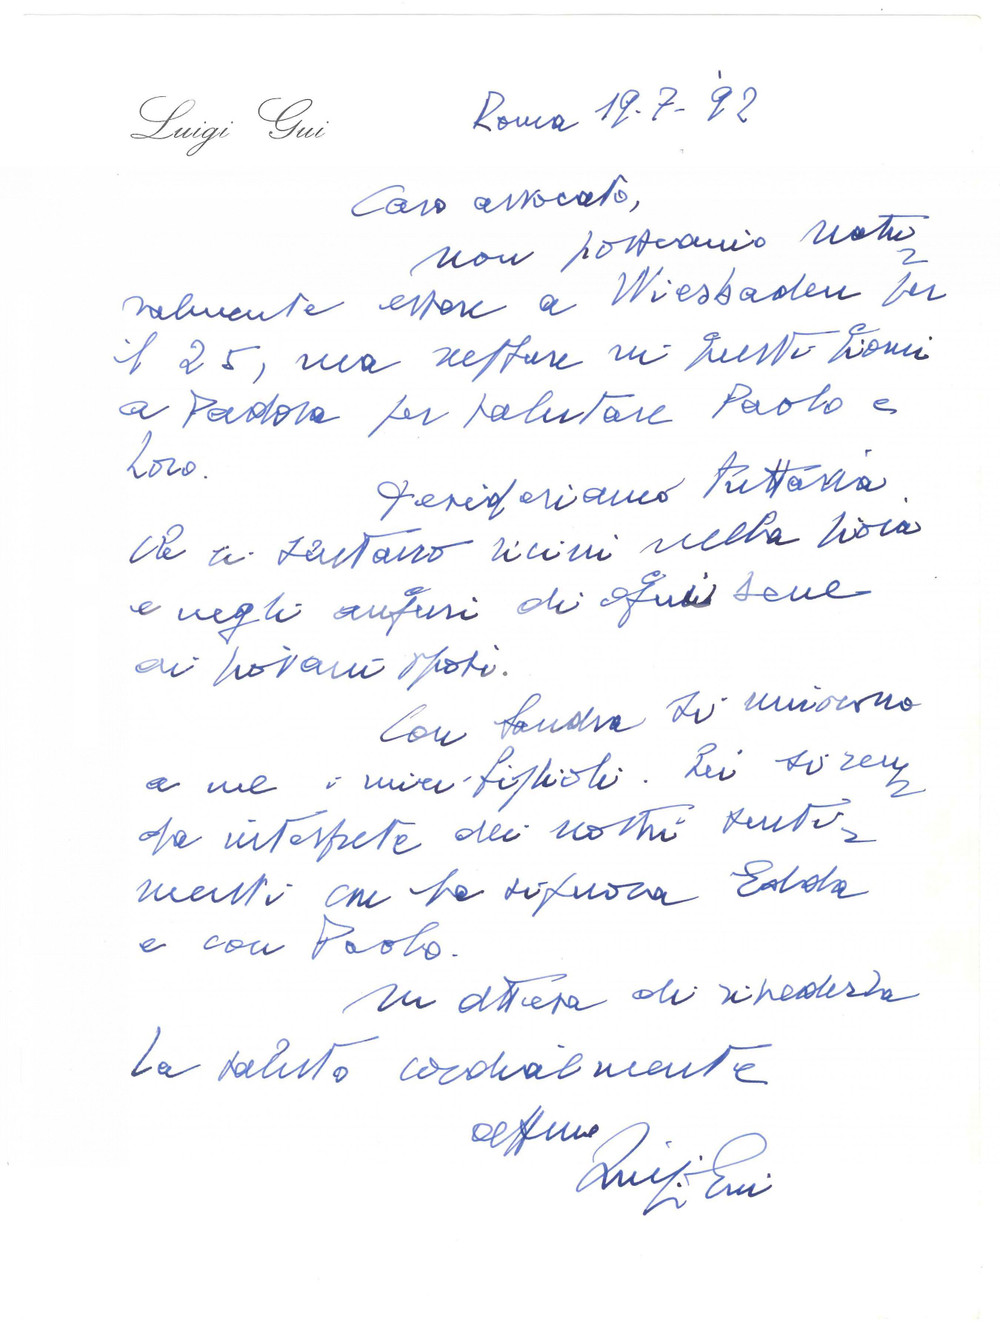 Luigi Gui
Roma 19-7-'92
Caro avvocato,
non possiamo natu=
ralmente essere a Wiesbaden per
il 25, ma neppure in questi giorni
a Padova per salutare Paolo e
Loro.
Desideriamo tuttavia
che ci sentano vicini nella gioia
e negli auguri di ogni bene
ai giovani sposi.
Con Sandra si uniscono
a me i miei figlioli. Lei si ren=
da interprete dei nostri senti=
menti con la signora Edda
e con Paolo.
In attesa di rivederla
La saluto cordialmente
aff.mo
Luigi Gui